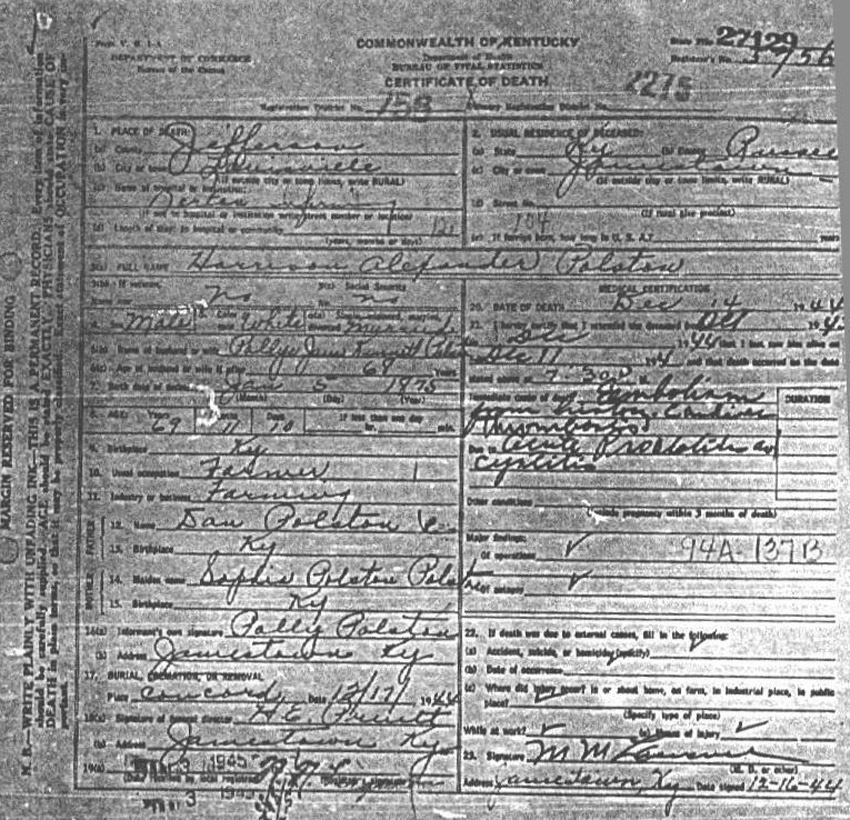 Form V. S. 1-A
DEPARTMENT OF COMMERCE
Bureau of the Census
COMMONWEALTH OF KENTUCKY
Department of Health
BUREAU OF VITAL STATISTICS
CERTIFICATE OF DEATH
State File 27129
Registrar's No.
2275
Registration District No. Primary Registration District No.
MARGIN RESERVED FOR BINDING
N. B.—WRITE PLANLY WITH UNFADING INK—THIS IS A PERMANENT RECORD. Every item of information
should be carefully supplied. AGE should be stated EXACTLY. PHYSICIANS should state CAUSE OF
DEATH in plain terms, so that it may be properly classified. Exact statement of OCCUPATION is very im-
portant.
1. PLACE OF DEATH:
(a) County Jefferson
(b) City or town Louisville
(If outside city or town limits, write RURAL)
(c) Name of hospital or institution:
(If not in hospital or institution write street number or location)
(d) Length of stay: In hospital or community
(years, months or days)
2. USUAL RESIDENCE OF DECEASED:
(a) State Ky (b) County Russell
(c) City or town Jamestown
(If outside city or town limits, write RURAL)
(d) Street No.
(If rural give precinct)
104
(e) If foreign born, how long in U. S. A.? years
3(a) FULL NAME Harrison Alexander Polston
3(b) If veteran, 3(c) Social Security
Name war no No. no
Male White
6(b) Name of husband or wife Polly Jane
6(c) Age of husband or wife if alive 69 years
7. Birth date of deceased Jan 5 1875
(Month) (Day) (Year)
8. AGE: Years Months Days If less than one day
69 11 hr. min.
9. Birthplace Ky
10. Usual occupation Farmer
11. Industry or business Farming
FATHER
12. Name Dan Polston
13. Birthplace Ky
MOTHER
14. Maiden name Sophia Polston
15. Birthplace Ky
16(a) Informant's own signature Polly Polston
(b) Address Jamestown Ky
17. BURIAL, CREMATION, OR REMOVAL
Place Concord Date 12/17/ 1944
18(a) Signature of funeral director H. E. Pruitt
(b) Address Jamestown Ky
19(a) 3 1945
3 1945
MEDICAL CERTIFICATION
20. DATE OF DEATH Dec 14 1944
21. I hereby certify that I attended the deceased from Oct 194
Dec 1944 that I last saw him alive on
Dec 11 194 and that death occurred on the date
stated above at 7:30 P
Immediate cause of death Embolism
from history Cardiac
thrombosis
Due to acute Prostatitis and
cystitis
DURATION
Other conditions
(Include pregnancy within 3 months of death)
Major findings:
Of operations ✓ 94A-137B
Of autopsy ✓
22. If death was due to external causes, fill in the following:
(a) Accident, suicide, or homicide (specify)
(b) Date of occurrence
(c) Where did injury occur? in or about home, on farm, in industrial place, in public
place?
(Specify type of place)
While at work? ✓ (e) Means of injury ✓
23. Signature M M
(M. D. or other)
Address Jamestown, Ky Date signed 12-16-44